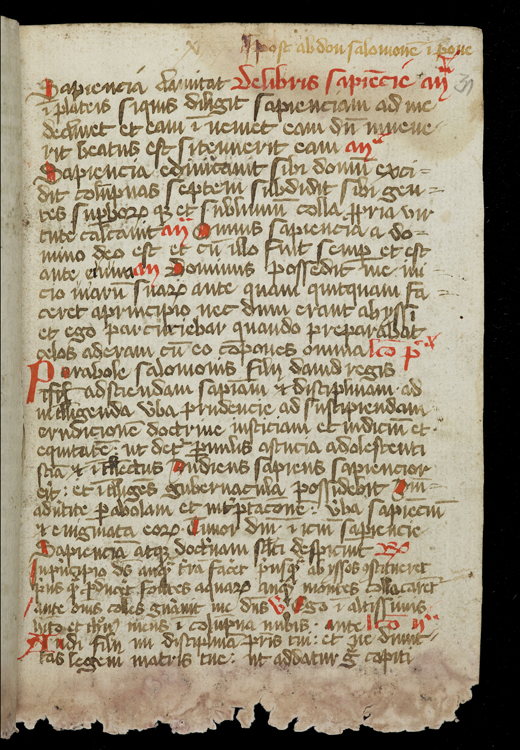 post ab don salomone i pone
Sapiencia clamitat De libris sapiēcie añ
i plateis siquis diligit sapienciam ad me
declinet et eam ī veniet eam dū invene
rit beatus est si tenuerit eam añ
Sapiencia edificavit sibi domū exci-
dit columpnas septem subdidit sibi gen-
tes superborꝝ et sublimiū colla ꝓpria vir
tute calcavit añ Omnis sapiencia a do-
mino deo est et cū illo fuit semꝑ et est
ante añ Dominus possedit me ini
cio viarū suarꝝ ante quam quitquam fa
ceret a principio nec dum erant abyssi
et ego parturiebar quando preparabat
celos aderam cū eo cōponens omnia lco p
Parabole salomonis filij david regis
isrl ad sciendam sapiam et disciplinam ad
intelligenda vba prudencie ad suscipiendam
erudicionē doctrine iusticiam et iudiciū et
equitatē ut det parvulis astucia adolescenti
sciā et intllectus Audiens sapiens sapiencior
erit et intelliges gubernacula possidebit Ani-
advertet parabolam et interptacōnē vba sapientū
et enigmata eorꝝ Timor dni iciū sapiencie
Sapiencia atqꝫ doctrinam stlti despiciunt
In principio ds anqꝫ trā facet priusqꝫ abyssos ostitueret
priusqꝫ ꝓduceret fontes aquarꝝ anqꝫ montes collocaret
ante ōnis colles gnavit me dns V Ego i altissimis
hito et thrꝰ meus i columpna nubis ante lco
Audi fili mi disciplinā pris tui et ne dimit-
tas legem matris tue ut addatur grā capiti